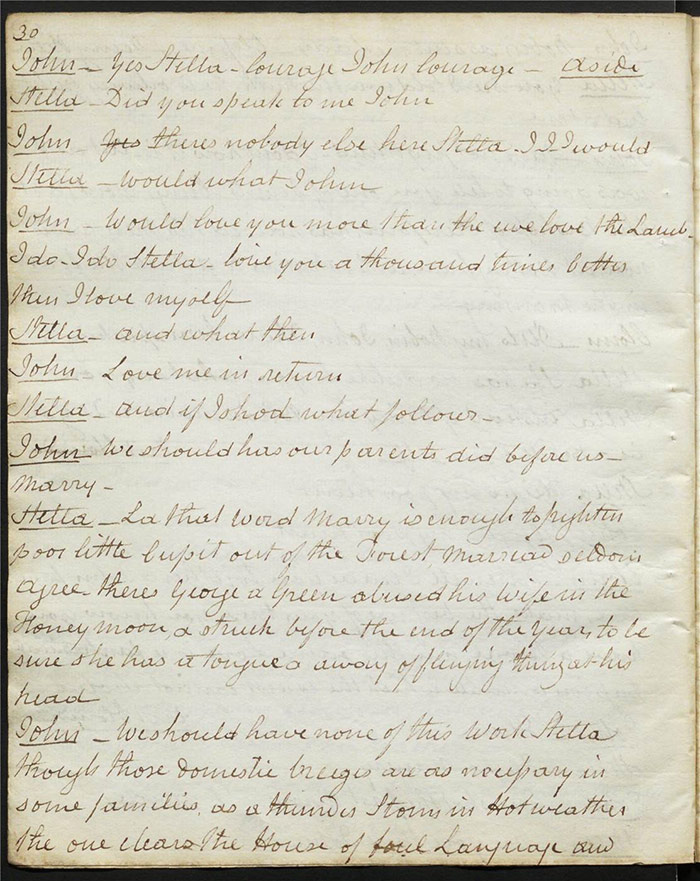 30
John - Yes Stella - Courage John Courage - aside
Stella - Did you speak to me John
John Yes theres nobody else here Stella - I-I-I would
Stella - would what John
John - Would love you more than the ewe love the Lamb -
I do - I do Stella - love you a thousand times better
then I love myself
Stella - and what then
John Love me in return
Stella - and if I shod what follows -
John We should has our parents did before us -
Marry -
Stella - La that word Marry is enough to frighten
poor little Cupit out of the Forest, Married seldom
agree - theres George a Green abused his wife in the
Honey moon, a struck before the end of the Year, to be
sure she has a tongue a away of flinging things at his
head
John - We should have none of this Work Stella
though those Domestic breezes are as necessary in
some families, as a thunder Storm in Hot weather
the one clears the House of foul Language and